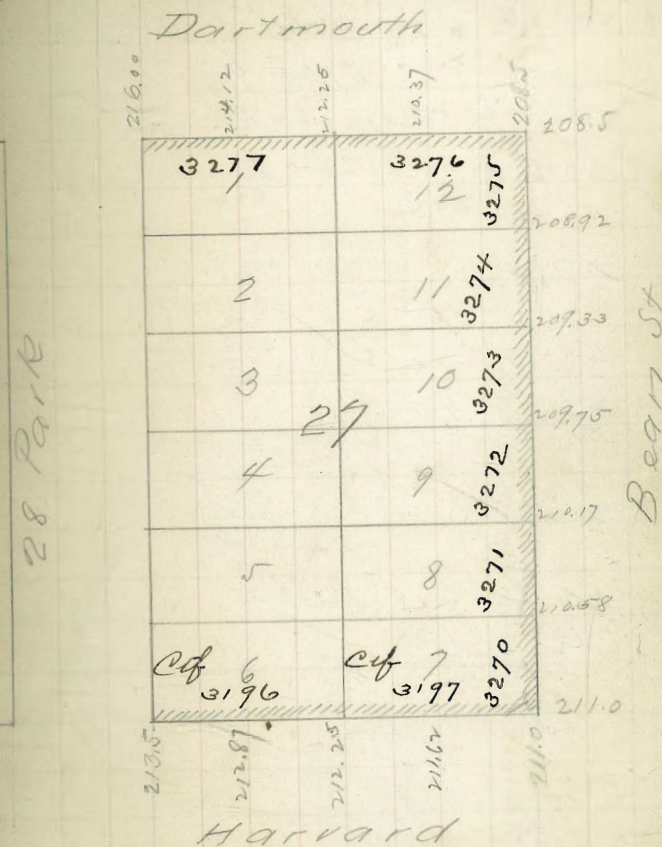 Dartmouth
216.00 214.12 212.25 210.37 208.5
208.5
3277 3276 3275
1 12
208.92
2 11 3274
209.33
3 10 3273
27
209.75
4 9 3272
210.17
5 8 3271
210.58
Cif 6 Cif 7 3270
3196 3197
211.0
213.5 212.87 212.25 211.62 211.0
Harvard
28 Park